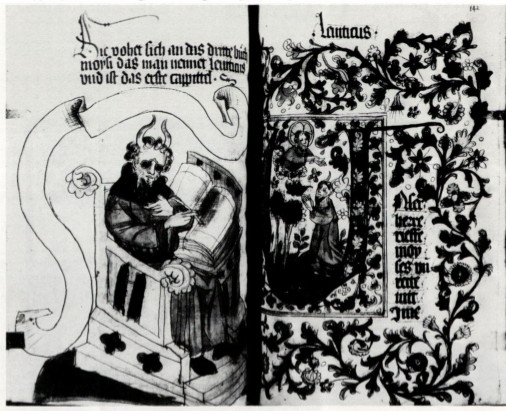 Hie vohet sich an das dritte buch
moysi das man nennet leuiticus
vnd ist das erste cappittel
leuiticus
142
Der
herre
rieffte
moy
ses vn
rette
mit
jme